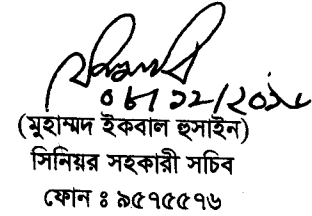 (মুহাম্মদ ইকবাল হুসাইন)
সিনিয়র সহকারী সচিব
ফোন ঃ ৯৫৭৫৫৭৬